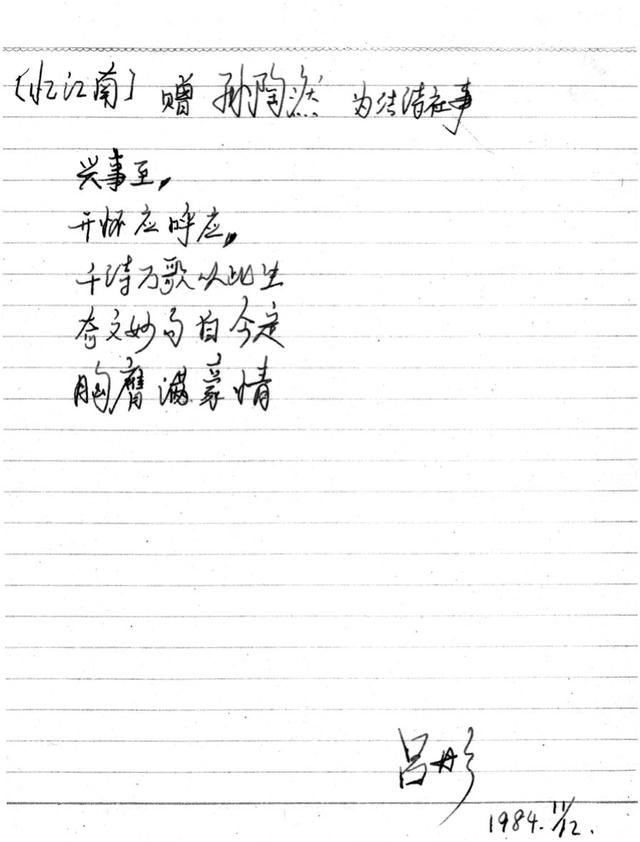 [忆江南] 赠 孙陶然 为结诗社事
兴事至，
开怀应呼应，
千诗万歌以此生
奇文妙句自今定
胸膺满豪情
吕彤
1984.11/12.